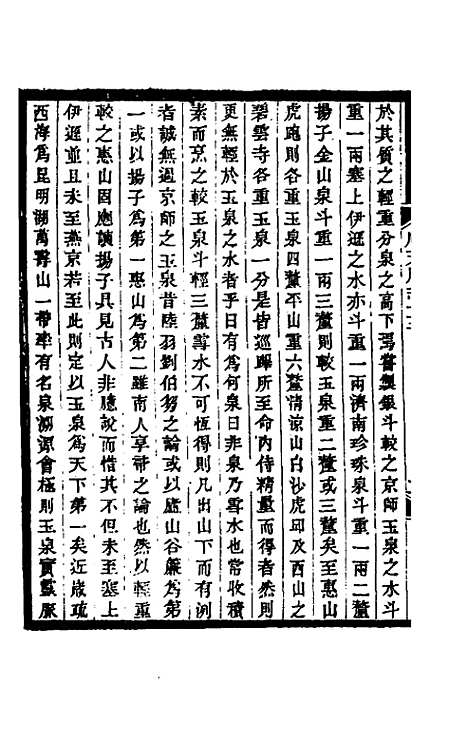 於其質之輕重分泉之高下焉嘗製銀斗較之京師玉泉之水斗
重一兩塞上伊遜之水亦斗重一兩濟南珍珠泉斗重一兩二釐
揚子金山泉斗重一兩三釐則較玉泉重二釐或三釐矣至惠山
虎跑則各重玉泉四釐平山重六釐清涼山白沙虎邱及西山之
碧雲寺各重玉泉一分是皆巡蹕所至命內侍精量而得者然則
更無輕於玉泉之水者乎曰有為何泉曰非泉乃雪水也常收積
素而烹之較玉泉斗輕三釐雪水不可恆得則凡出山下而有洌
者誠無過京師之玉泉昔陸羽劉伯芻之論或以廬山谷簾為第
一或以揚子為第一惠山為第二雖南人享帚之論也然以輕重
較之惠山固應讓揚子具見古人非臆說而惜其不但未至塞上
伊遜並且未至燕京若至此則定以玉泉為天下第一矣近歲疏
西海為昆明湖萬壽山一帶率有名泉溯源會極則玉泉實靈脈